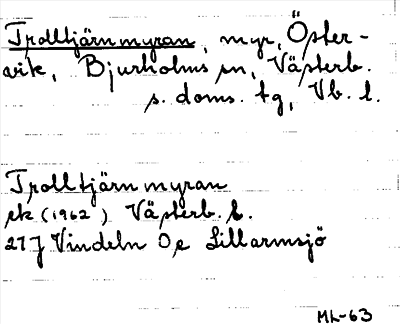 Trolltjärnmyran, myr, Öster-
vik, Bjurholms sn, Västerb.
s. doms. tg, Vb. l.
Trolltjärnmyran
ek (1962) Västerb. l.
21J Vindeln 0e Lillarmsjö
ML-63